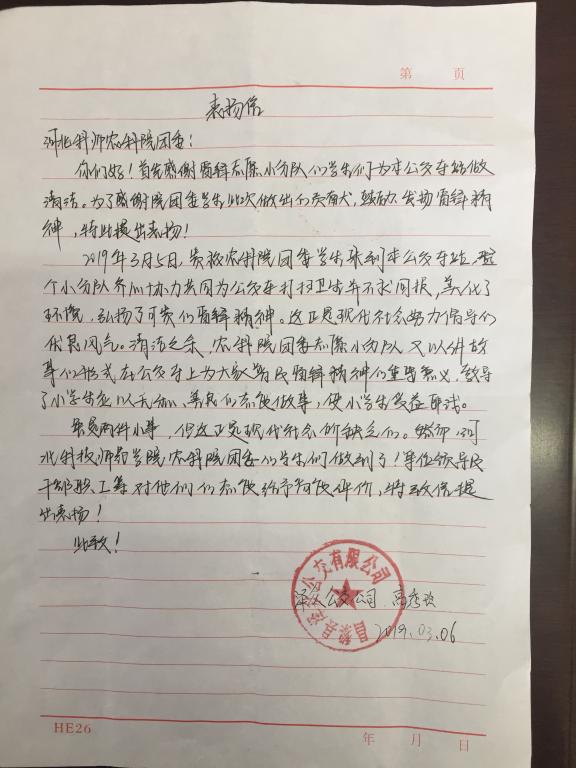 第 页
表扬信
河北科师农科院团委:
你们好!首先感谢雷锋志愿小分队的学生们为本公交车站做
清洁。为了感谢院团委学生此次做出的贡献,鼓励发扬雷锋精
神,特此提出表扬!
2019年3月5日,贵校农科院团委学生来到本公交车站,整
个小分队齐心协力共同为公交车打扫卫生并不求回报,美化了
环境,弘扬了可贵的雷锋精神。这正是现代社会努力倡导的
优良风气。清洁之余,农科院团委志愿小分队又以讲故
事的形式在公交车上为大家 雷锋精神的重要意义,教导
了小学生应以无私、善良的态度做事,使小学生受益匪浅。
虽是两件小事,但这正是现代社会所缺乏的。然而,河
北科技师范学院农科院团委的学生们做到了!单位领导及
干部职工等对他们的态度给予高度评价,特致信提
出表扬!
此致!
昌黎县 公交有限公司
公交公司 高
2019.03.06
HE26
年 月 日